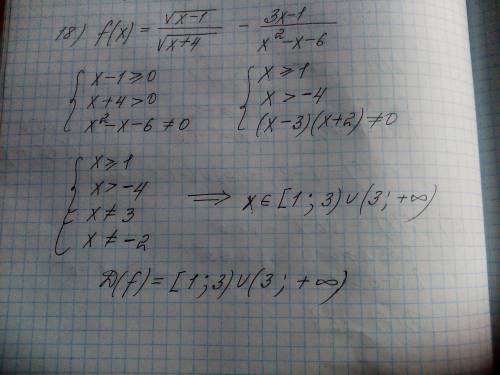 18) f(x) = √(x-1) / √(x+4) - (3x-1) / (x²-x-6)
{ x-1≥0
x+4>0
x²-x-6≠0
{ x≥1
x>-4
(x-3)(x+2)≠0
{ x≥1
x>-4
x≠3
x≠-2
⟹ x∈[1;3)∪(3;+∞)
D(f)=[1;3)∪(3;+∞)